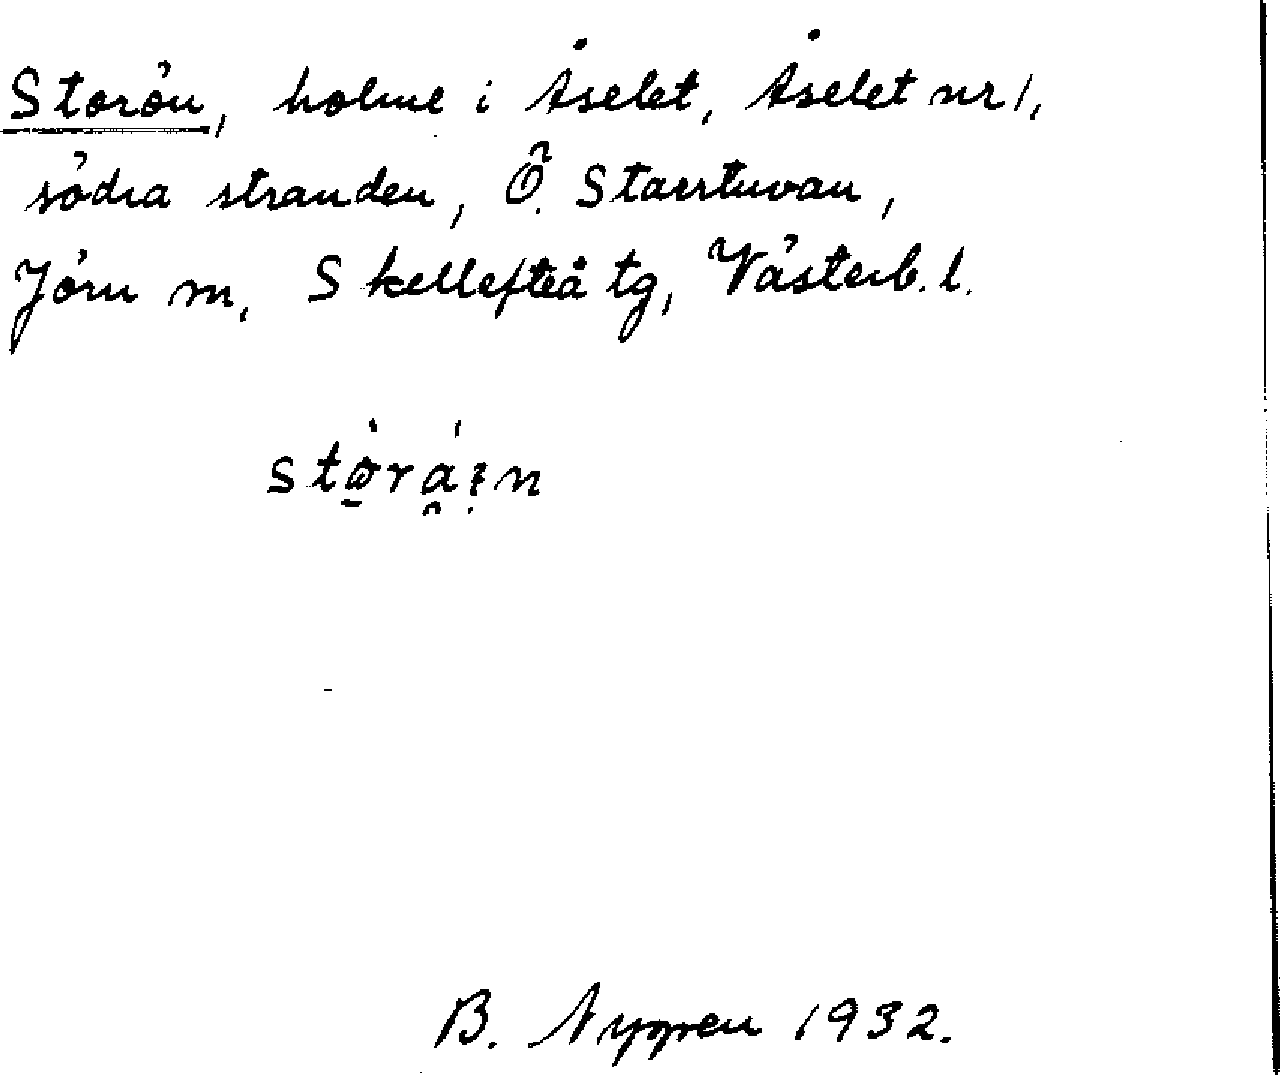 Storön, holme i Åselet, Åselet nr 1,
södra stranden, Ö. Starrtuvan,
Jörn sn, Skellefteå tg, Västerb. l.
B. Nygren 1932.